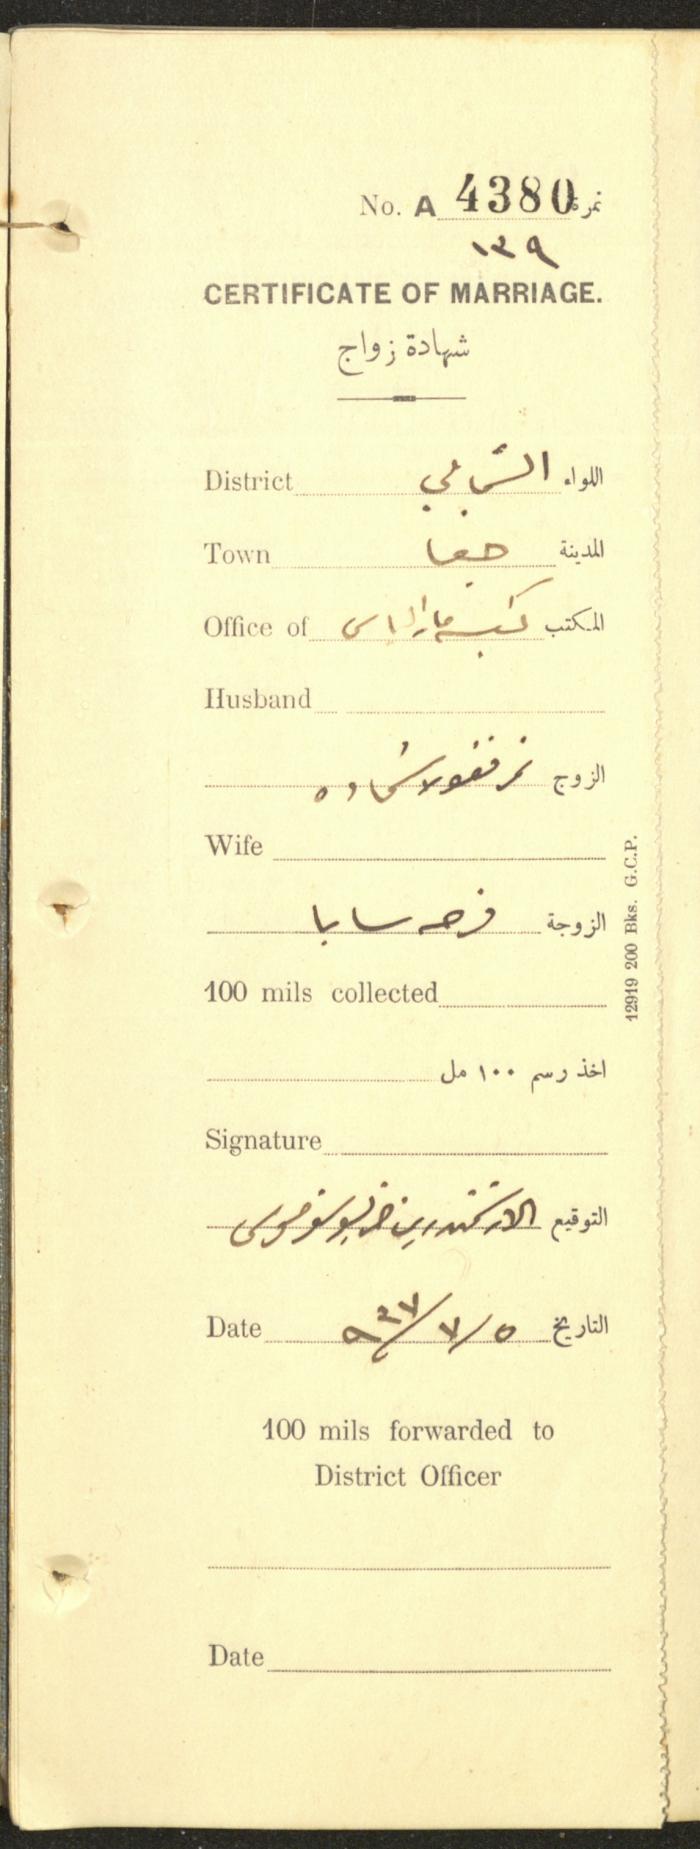 No. A 4380 نمرة
١٣٩
CERTIFICATE OF MARRIAGE.
شهادة زواج
District الشمالي اللواء
Town حيفا المدينة
Office of كنيسة مار الياس المكتب
Husband
الزوج نمر نقولا شحاده
Wife
الزوجة فرحه سابا
100 mils collected
اخذ رسم ١٠٠ مل
Signature
التوقيع
Date ٥/٧/٩٣٧ التاريخ
100 mils forwarded to
District Officer
Date
12919 200 Bks. G.C.P.